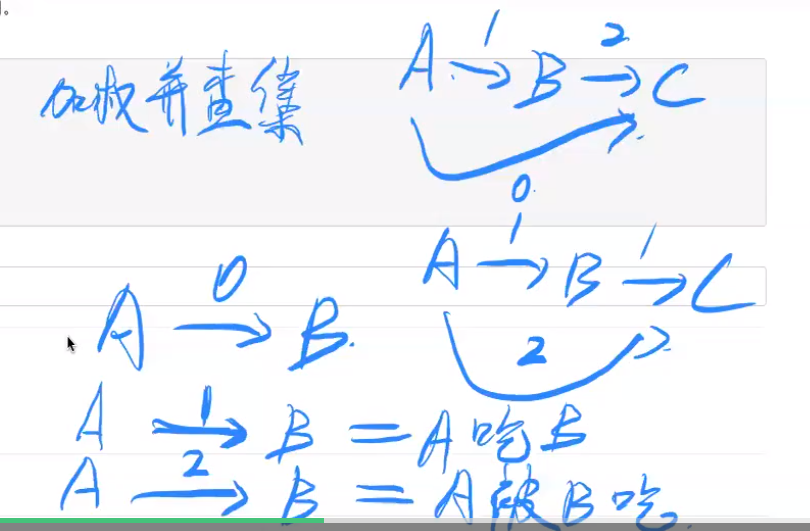 加权并查集
A →1 B →2 C
0
A →1 B →1 C
2
A →0 B.
A →1 B = A吃B
A →2 B = A被B吃